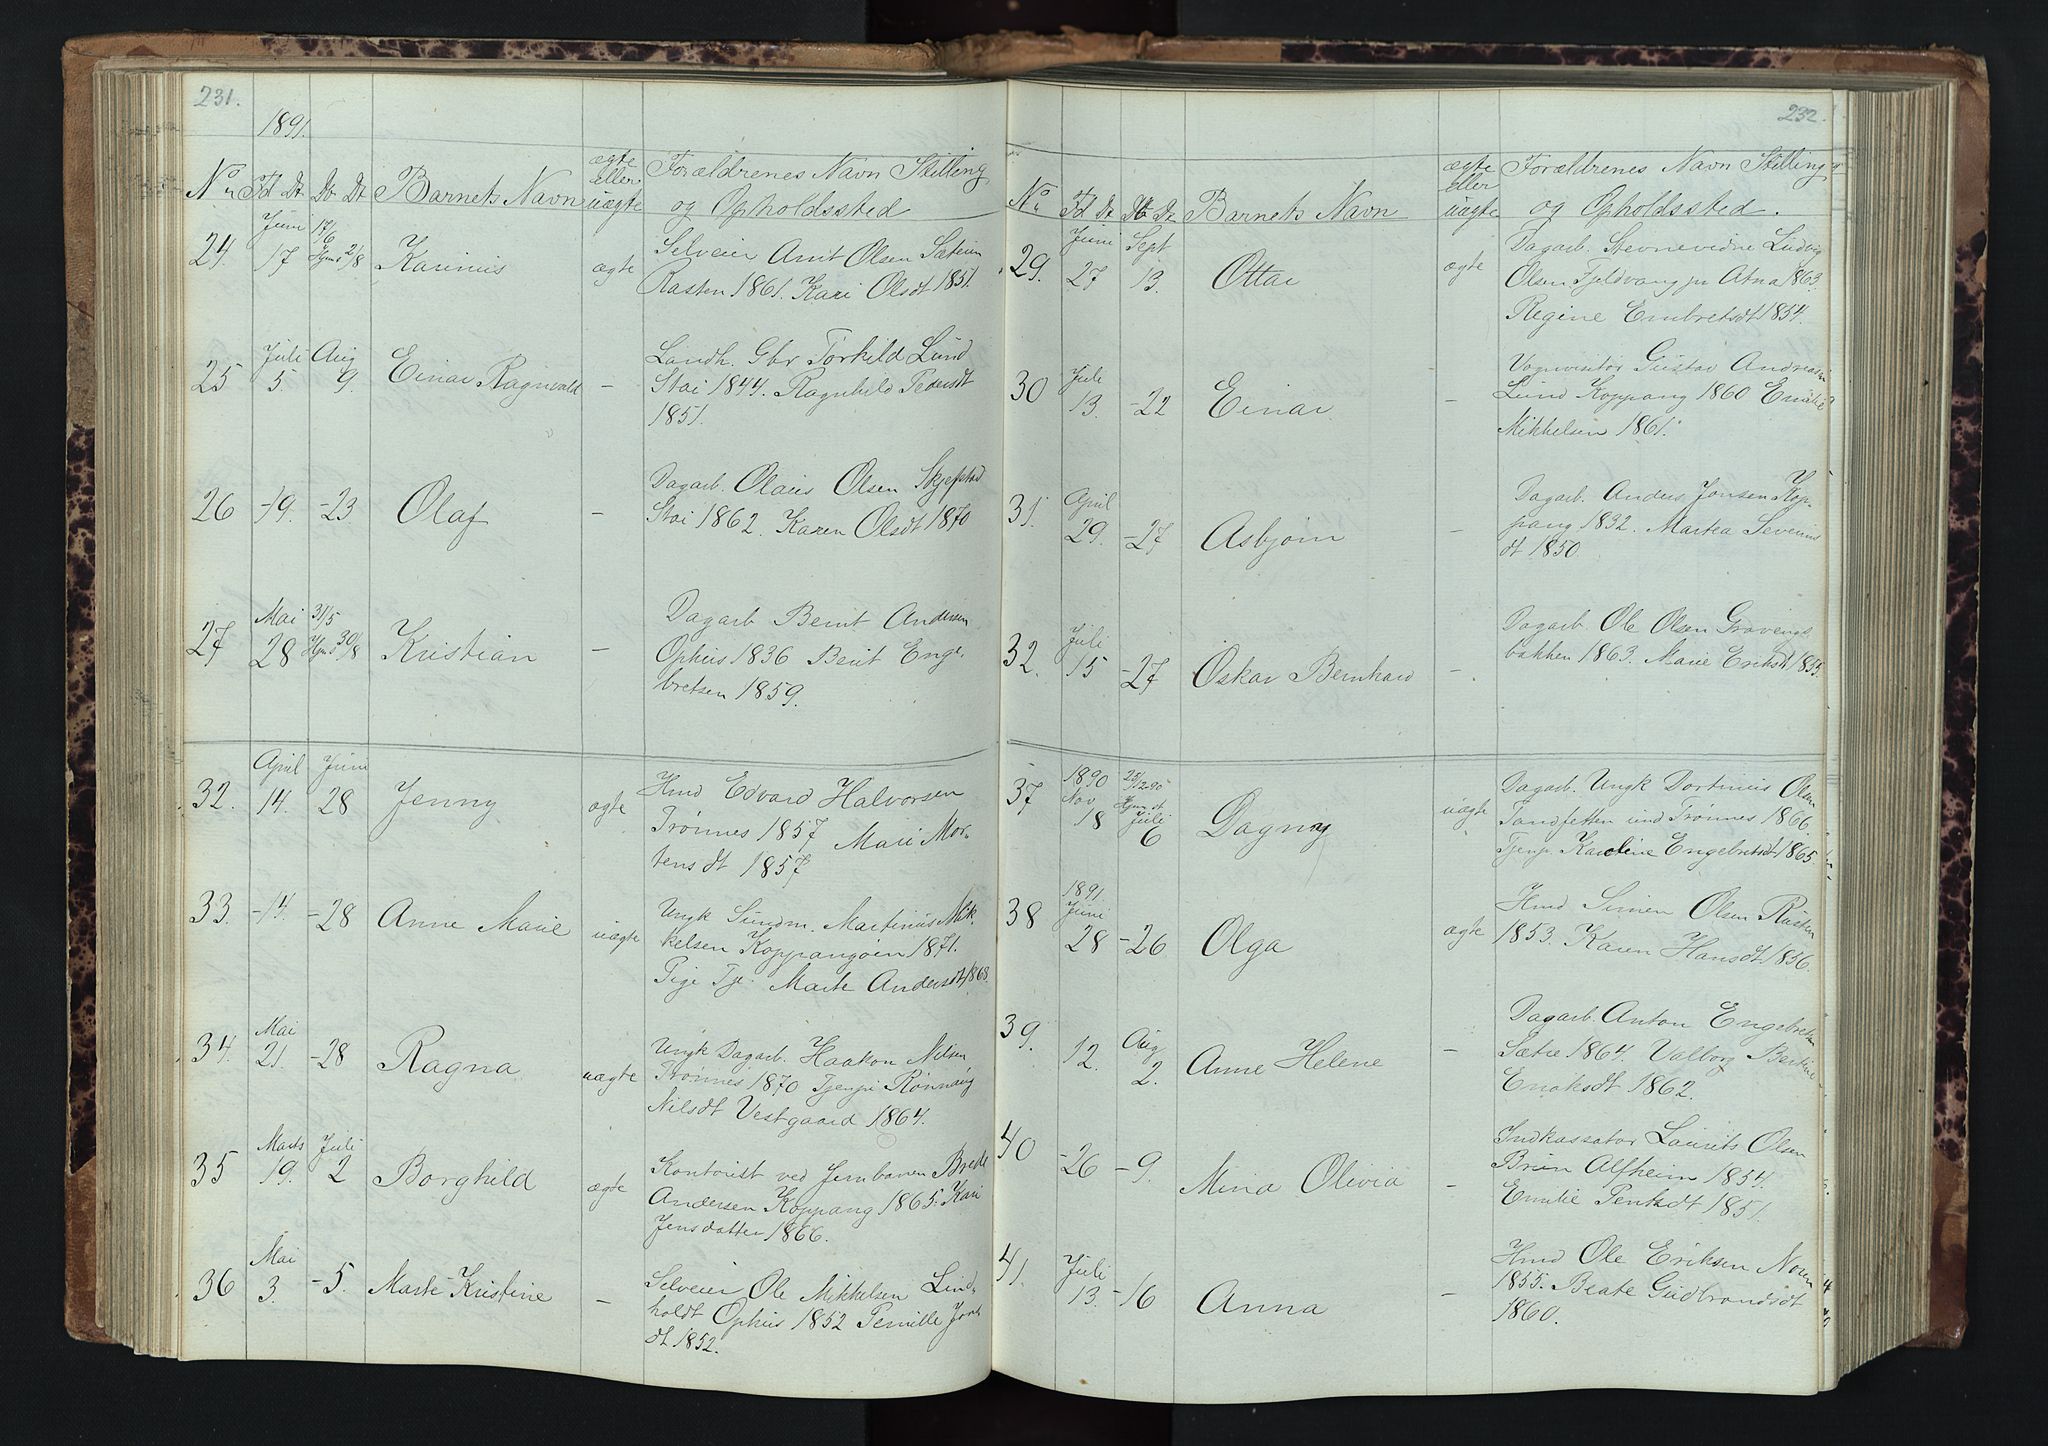 231.
1891.
No Fd Dt Db Dt Barnets Navn ægte eller uægte Forældrenes Navn Stilling og Opholdssted
24. Juni 17 17/6 Hjmd 2/8 Karinus ægte Selveier Arnt Olsen Sætrum
Rasten 1861. Kari Olsdt 1851.
25 Juli 5. Aug 9. Einar Ragnvald - Landh. Gbr Torkild Lund
Stai 1844. Ragnhild Pedersdt
1851.
26 -19. -23 Olaf - Dagarb. Olaus Olsen Skjefstad
Stai 1862. Karen Olsdt 1870
27 Mai 28 31/5 Hjmd 30/8 Kristian - Dagarb Bernt Andersen
Ophus 1836 Berit Enge-
bretsen 1859.
32. April 14. Juni 28 Jenny ægte Hmd Edvard Halvorsen
Trønnes 1857 Mari Mor-
tensdt 1857
33. -14. -28 Anne Marie uægte Ungk Sundm. Martinus Mik-
kelsen Koppangøien 1871.
Pige Tje. Marte Andersdt 1868.
34. Mai 21. -28 Ragna uægte Ungk Dagarb. Haakon Nilsen
Trønnes 1870 Tjenpi Rønnaug
Nilsdt Vestgaard 1864.
35 Marts 19. Juli 2 Borghild ægte Kontorist ved Jernbanen Brede
Andersen Koppang 1865. Kari
Jensdatter 1866.
36 Mai 3. -5. Marte Kristine - Selveier Ole Mikkelsen Lind-
holdt Ophus 1852 Pernille Jons
dt 1852.
232.
No Fd Dt Db Dt Barnets Navn ægte eller uægte Forældrenes Navn Stilling og Opholdssted.
29. Juni 27 Sept 13. Ottar ægte Dagarb. Stevnevidne Ludvig
Olsen Fjeldvang pr Atna 1863.
Regine Embretsdt 1854.
30 Juli 13. -22 Einar - Vognvisitør Gustav Andreas
Lund Koppang 1860 Emilie
Mikkelsen 1861.
31. April 29. -27 Asbjørn - Dagarb. Anders Jonsen Kop-
pang 1832. Martea Severins
dt 1850.
32. Juli 15 -27 Oskar Bernhard - Dagarb. Ole Olsen Gravengs
bakken 1863. Marie Eriksdt 1855.
37 1890 Nov 18 25/12 90 Hjm st Juli 6 Dagny uægte Dagarb. Ungk Dortinius Olsen
Sandfetten und Trønnes 1866.
Tjenp. Karoline Engebretsdt 1865
38 1891 Juni 28 -26 Olga ægte Hmd Simen Olsen Rasten
1853. Karen Hansdt 1856.
39. 12. Aug 2. Anne Helene - Dagarb. Anton Engebretsen
Sætre 1864. Valborg Bertine
Eriksdt 1862.
40 -26 -9. Mina Olivia - Indkassator Laurits Olsen
Brun Alfheim 1854.
Emilie 1851.
41. Juli 13. -16 Anna - Hmd Ole Eriksen Noren
1855. Beate Gudbrandsdt
1860.